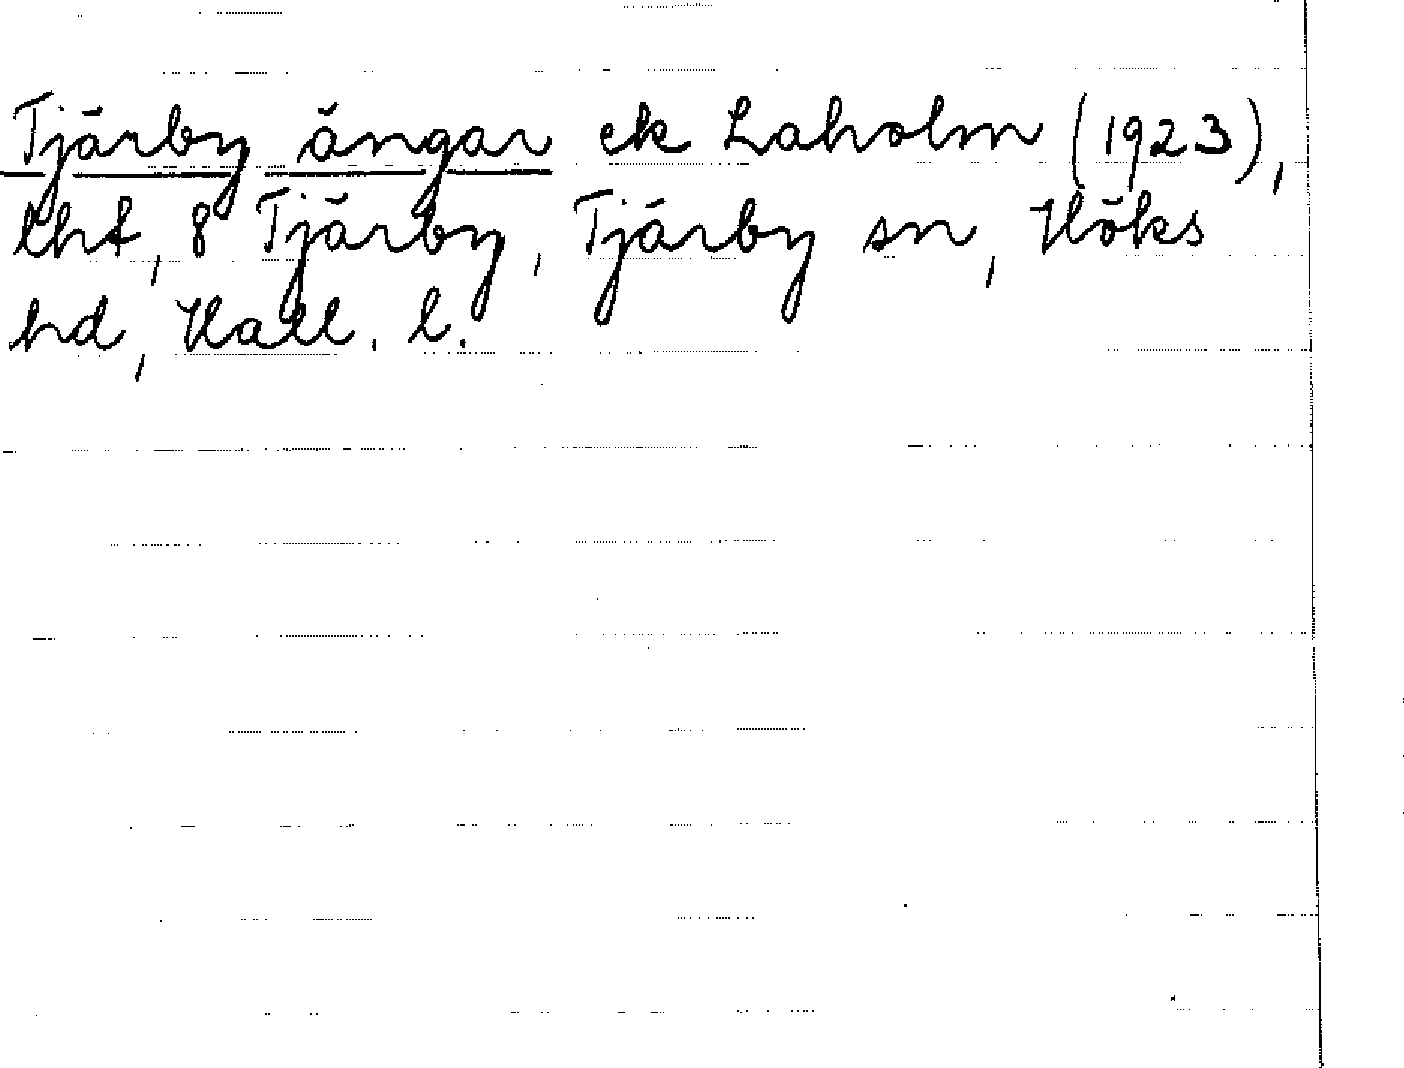 Tjärby ängar ek Laholm (1923),
lht, 8 Tjärby, Tjärby sn, Höks
hd, Hall. l.